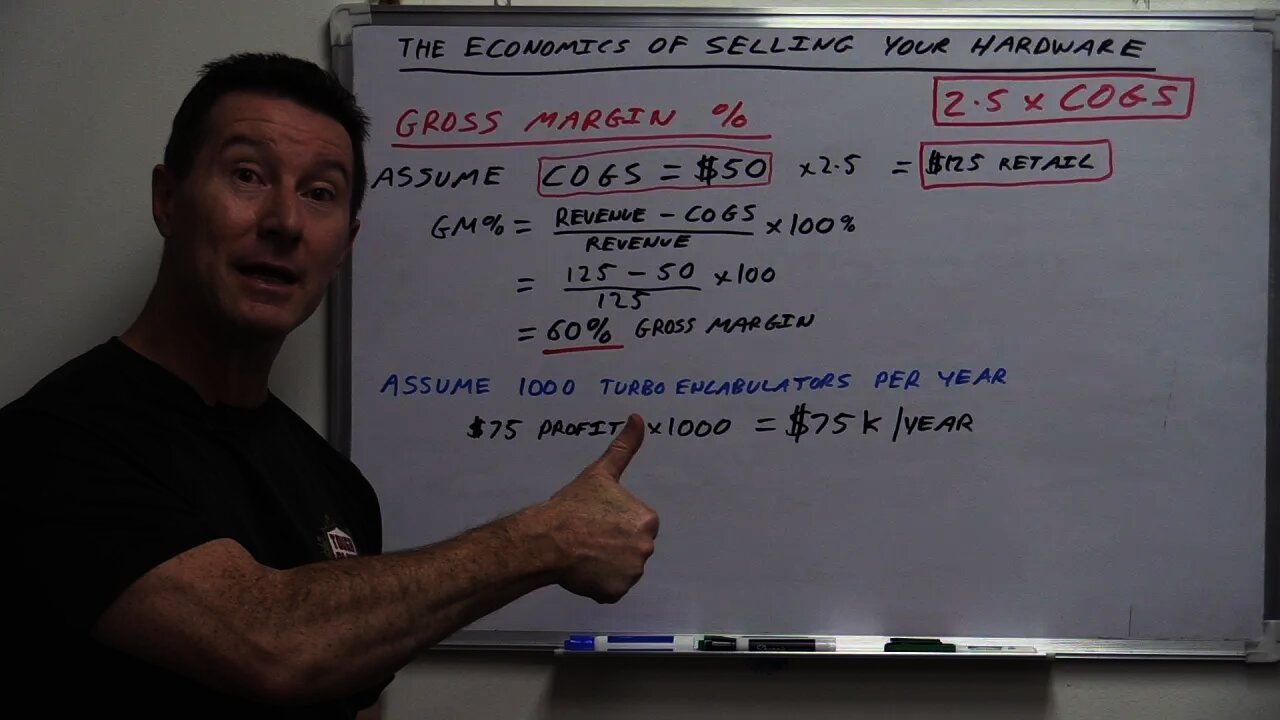 THE ECONOMICS OF SELLING YOUR HARDWARE
2.5 x COGS
GROSS MARGIN %
ASSUME COGS = $50 x 2.5 = $125 RETAIL
GM% = REVENUE - COGS / REVENUE x 100%
= 125 - 50 / 125 x 100
= 60% GROSS MARGIN
ASSUME 1000 TURBO ENCABULATORS PER YEAR
$75 PROFIT x 1000 = $75K /YEAR